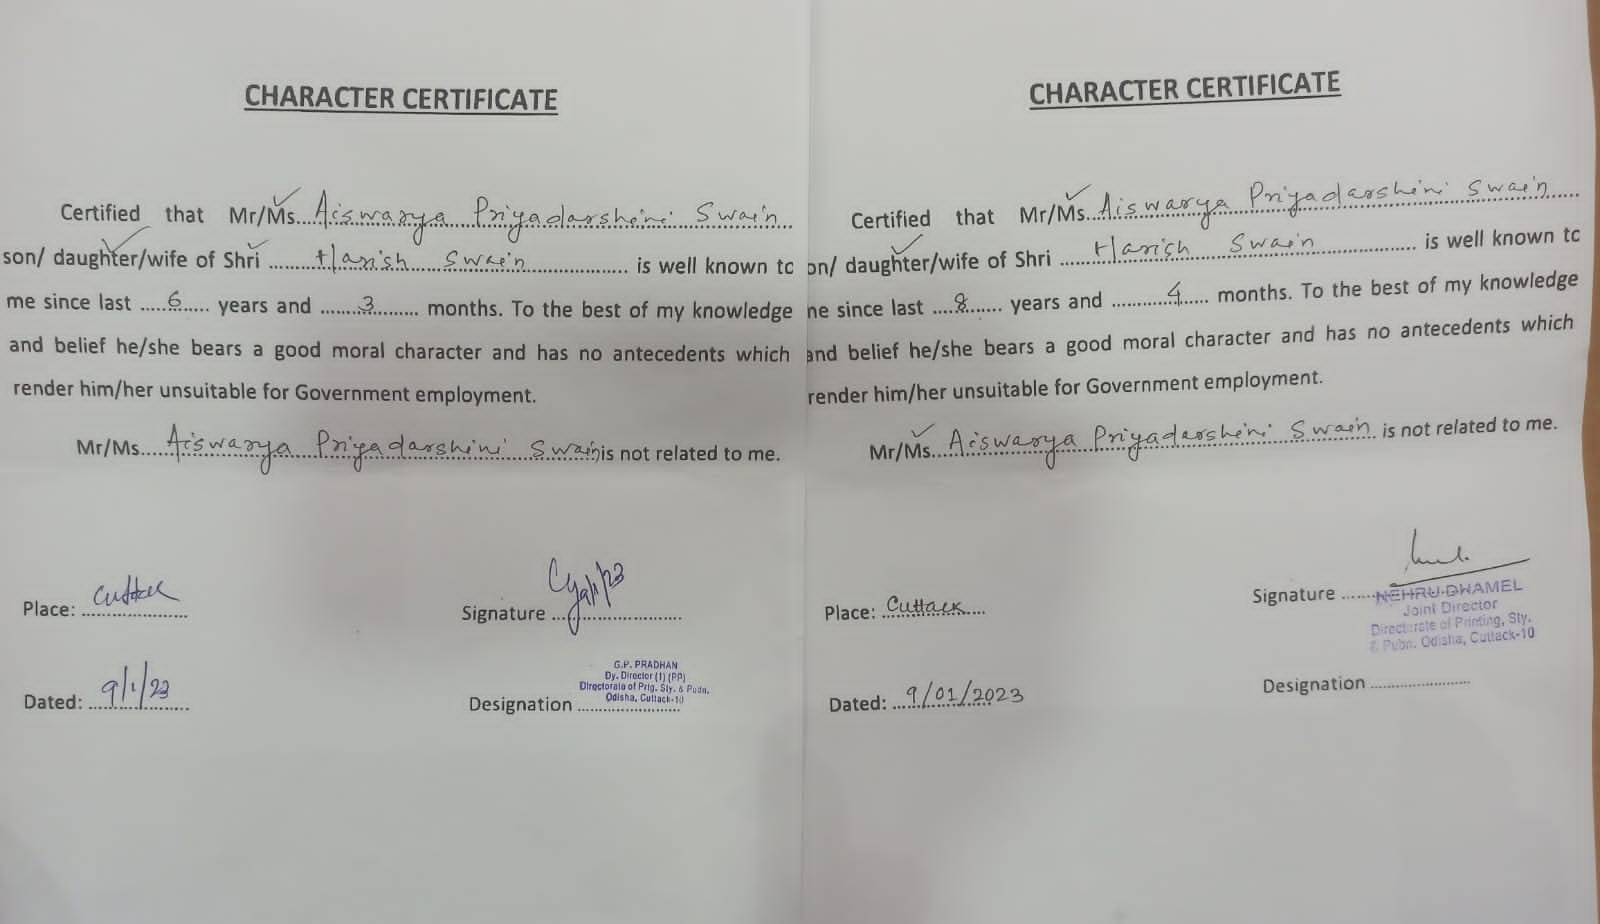 CHARACTER CERTIFICATE
Certified that Mr/Ms...Aiswarya Priyadarshini Swain
son/ daughter/wife of Shri ..........Harish Swain.......................... is well known to
me since last .....6...... years and ........3.......... months. To the best of my knowledge
and belief he/she bears a good moral character and has no antecedents which
render him/her unsuitable for Government employment.
Mr/Ms....Aiswarya Priyadarshini Swain is not related to me.
Place: Cuttack
Signature ............................
Dated: 9/1/23
G.P. PRADHAN
Dy. Director (1) (PP)
Directorate of Prtg. Sty. & Pubn.
Odisha, Cuttack-10
Designation ......................
CHARACTER CERTIFICATE
Certified that Mr/Ms..Aiswarya Priyadarshini Swain.....
on/ daughter/wife of Shri ......Harish Swain................ is well known to
ne since last .....8........ years and .............4...... months. To the best of my knowledge
and belief he/she bears a good moral character and has no antecedents which
render him/her unsuitable for Government employment.
Mr/Ms...Aiswarya Priyadarshini Swain is not related to me.
Place: Cuttack.....
Signature .......
NEHRU DHAMEL
Joint Director
Directorate of Printing, Sty.
& Pubn. Odisha, Cuttack-10
Dated: ...9/01/2023
Designation ......................